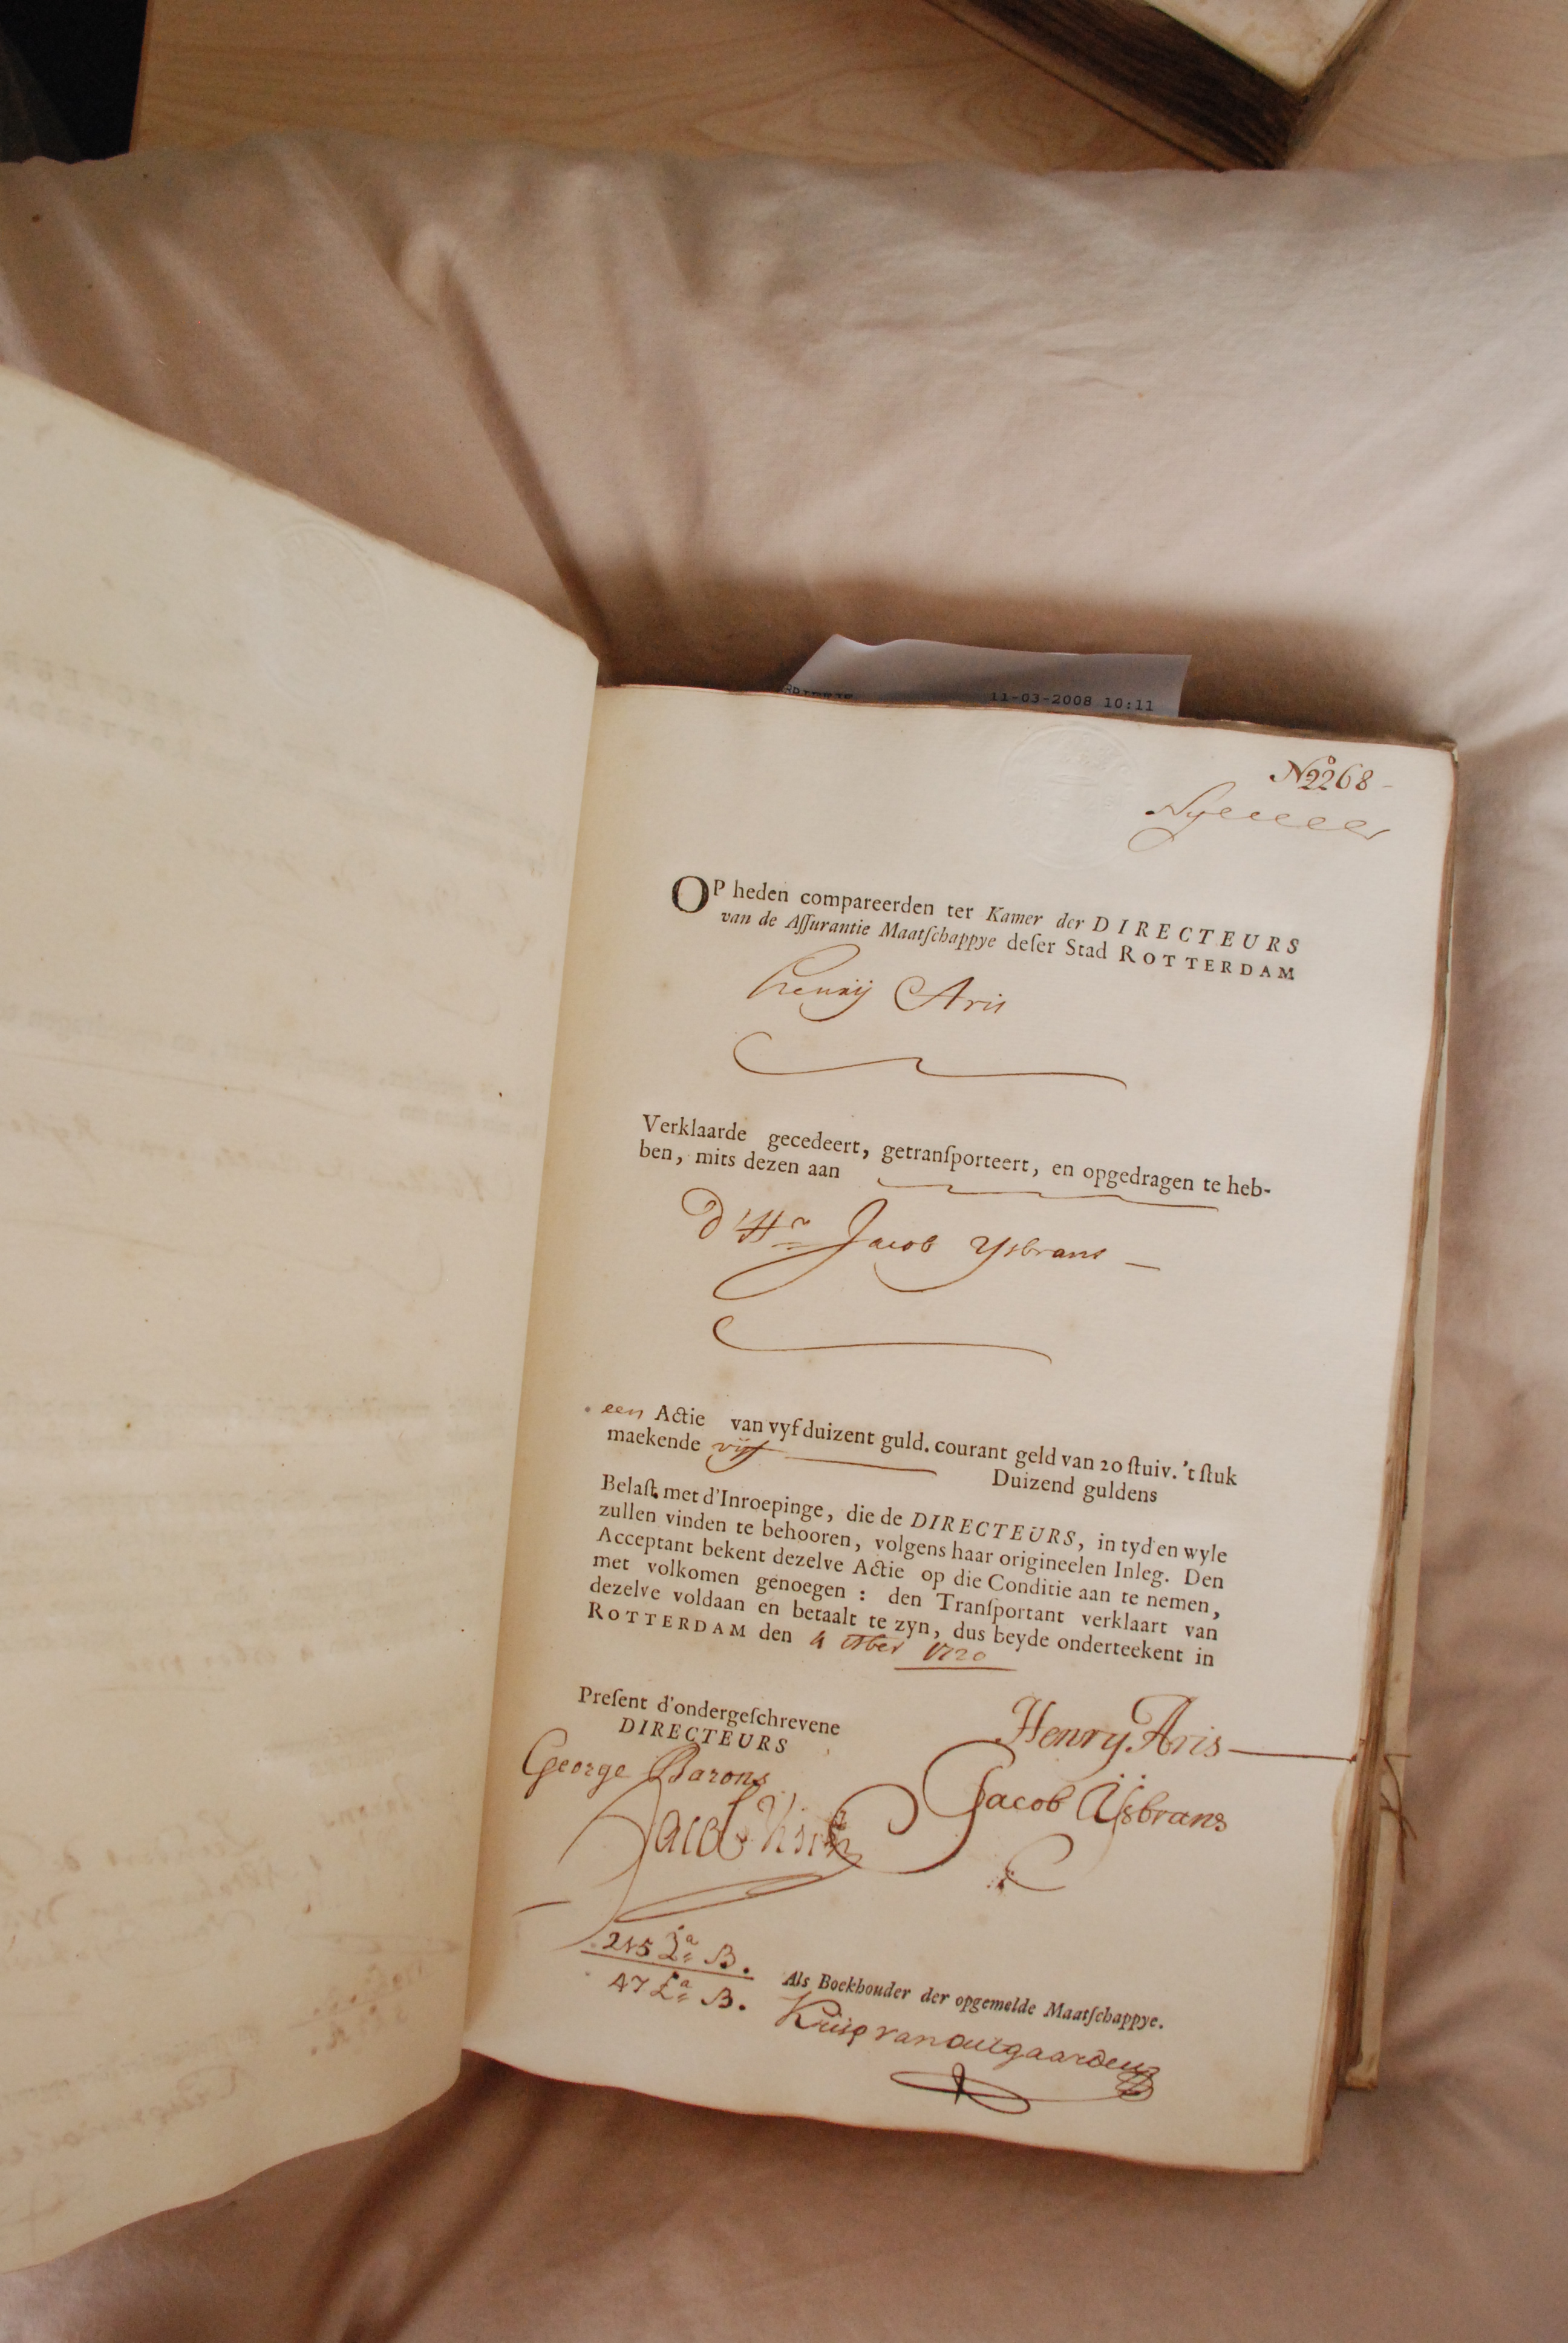 11-03-2008 10:11
No 2268 -
OP heden compareerden ter Kamer der DIRECTEURS
van de Aſſurantie Maatſchappye deſer Stad ROTTERDAM
Henrij Aris
Verklaarde gecedeert, getranſporteert, en opgedragen te heb-
ben, mits dezen aan
d'Hr Jacob Ysbrans —
een Actie van vyf duizent guld. courant geld van 20 ſtuiv. 't ſtuk
maekende vijf Duizend guldens
Belaſt met d'Inroepinge, die de DIRECTEURS, in tyd en wyle
zullen vinden te behooren, volgens haar origineelen Inleg. Den
Acceptant bekent dezelve Actie op die Conditie aan te nemen,
met volkomen genoegen : den Tranſportant verklaart van
dezelve voldaan en betaalt te zyn, dus beyde onderteekent in
ROTTERDAM den 4 1720
Preſent d'ondergeſchrevene
DIRECTEURS
Henry Aris
George Barons
Jacob Ÿsbrans
Jacob
215 La B.
47 La B.
Als Boekhouder der opgemelde Maatſchappye.